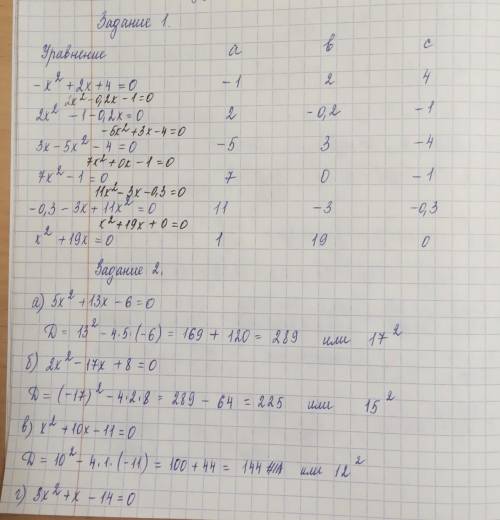 Задание 1.
Уравнение а в с
-x² + 2x + 4 = 0 -1 2 4
2x² - 0,2x - 1 = 0
2x² - 1 - 0,2x = 0 2 -0,2 -1
-5x² + 3x - 4 = 0
3x - 5x² - 4 = 0 -5 3 -4
7x² + 0x - 1 = 0
7x² - 1 = 0 7 0 -1
11x² - 3x - 0,3 = 0
-0,3 - 3x + 11x² = 0 11 -3 -0,3
x² + 19x + 0 = 0
x² + 19x = 0 1 19 0
Задание 2.
а) 5x² + 13x - 6 = 0
D = 13² - 4·5·(-6) = 169 + 120 = 289 или 17²
б) 2x² - 17x + 8 = 0
D = (-17)² - 4·2·8 = 289 - 64 = 225 или 15²
в) x² + 10x - 11 = 0
D = 10² - 4·1·(-11) = 100 + 44 = 144 или 12²
г) 3x² + x - 14 = 0